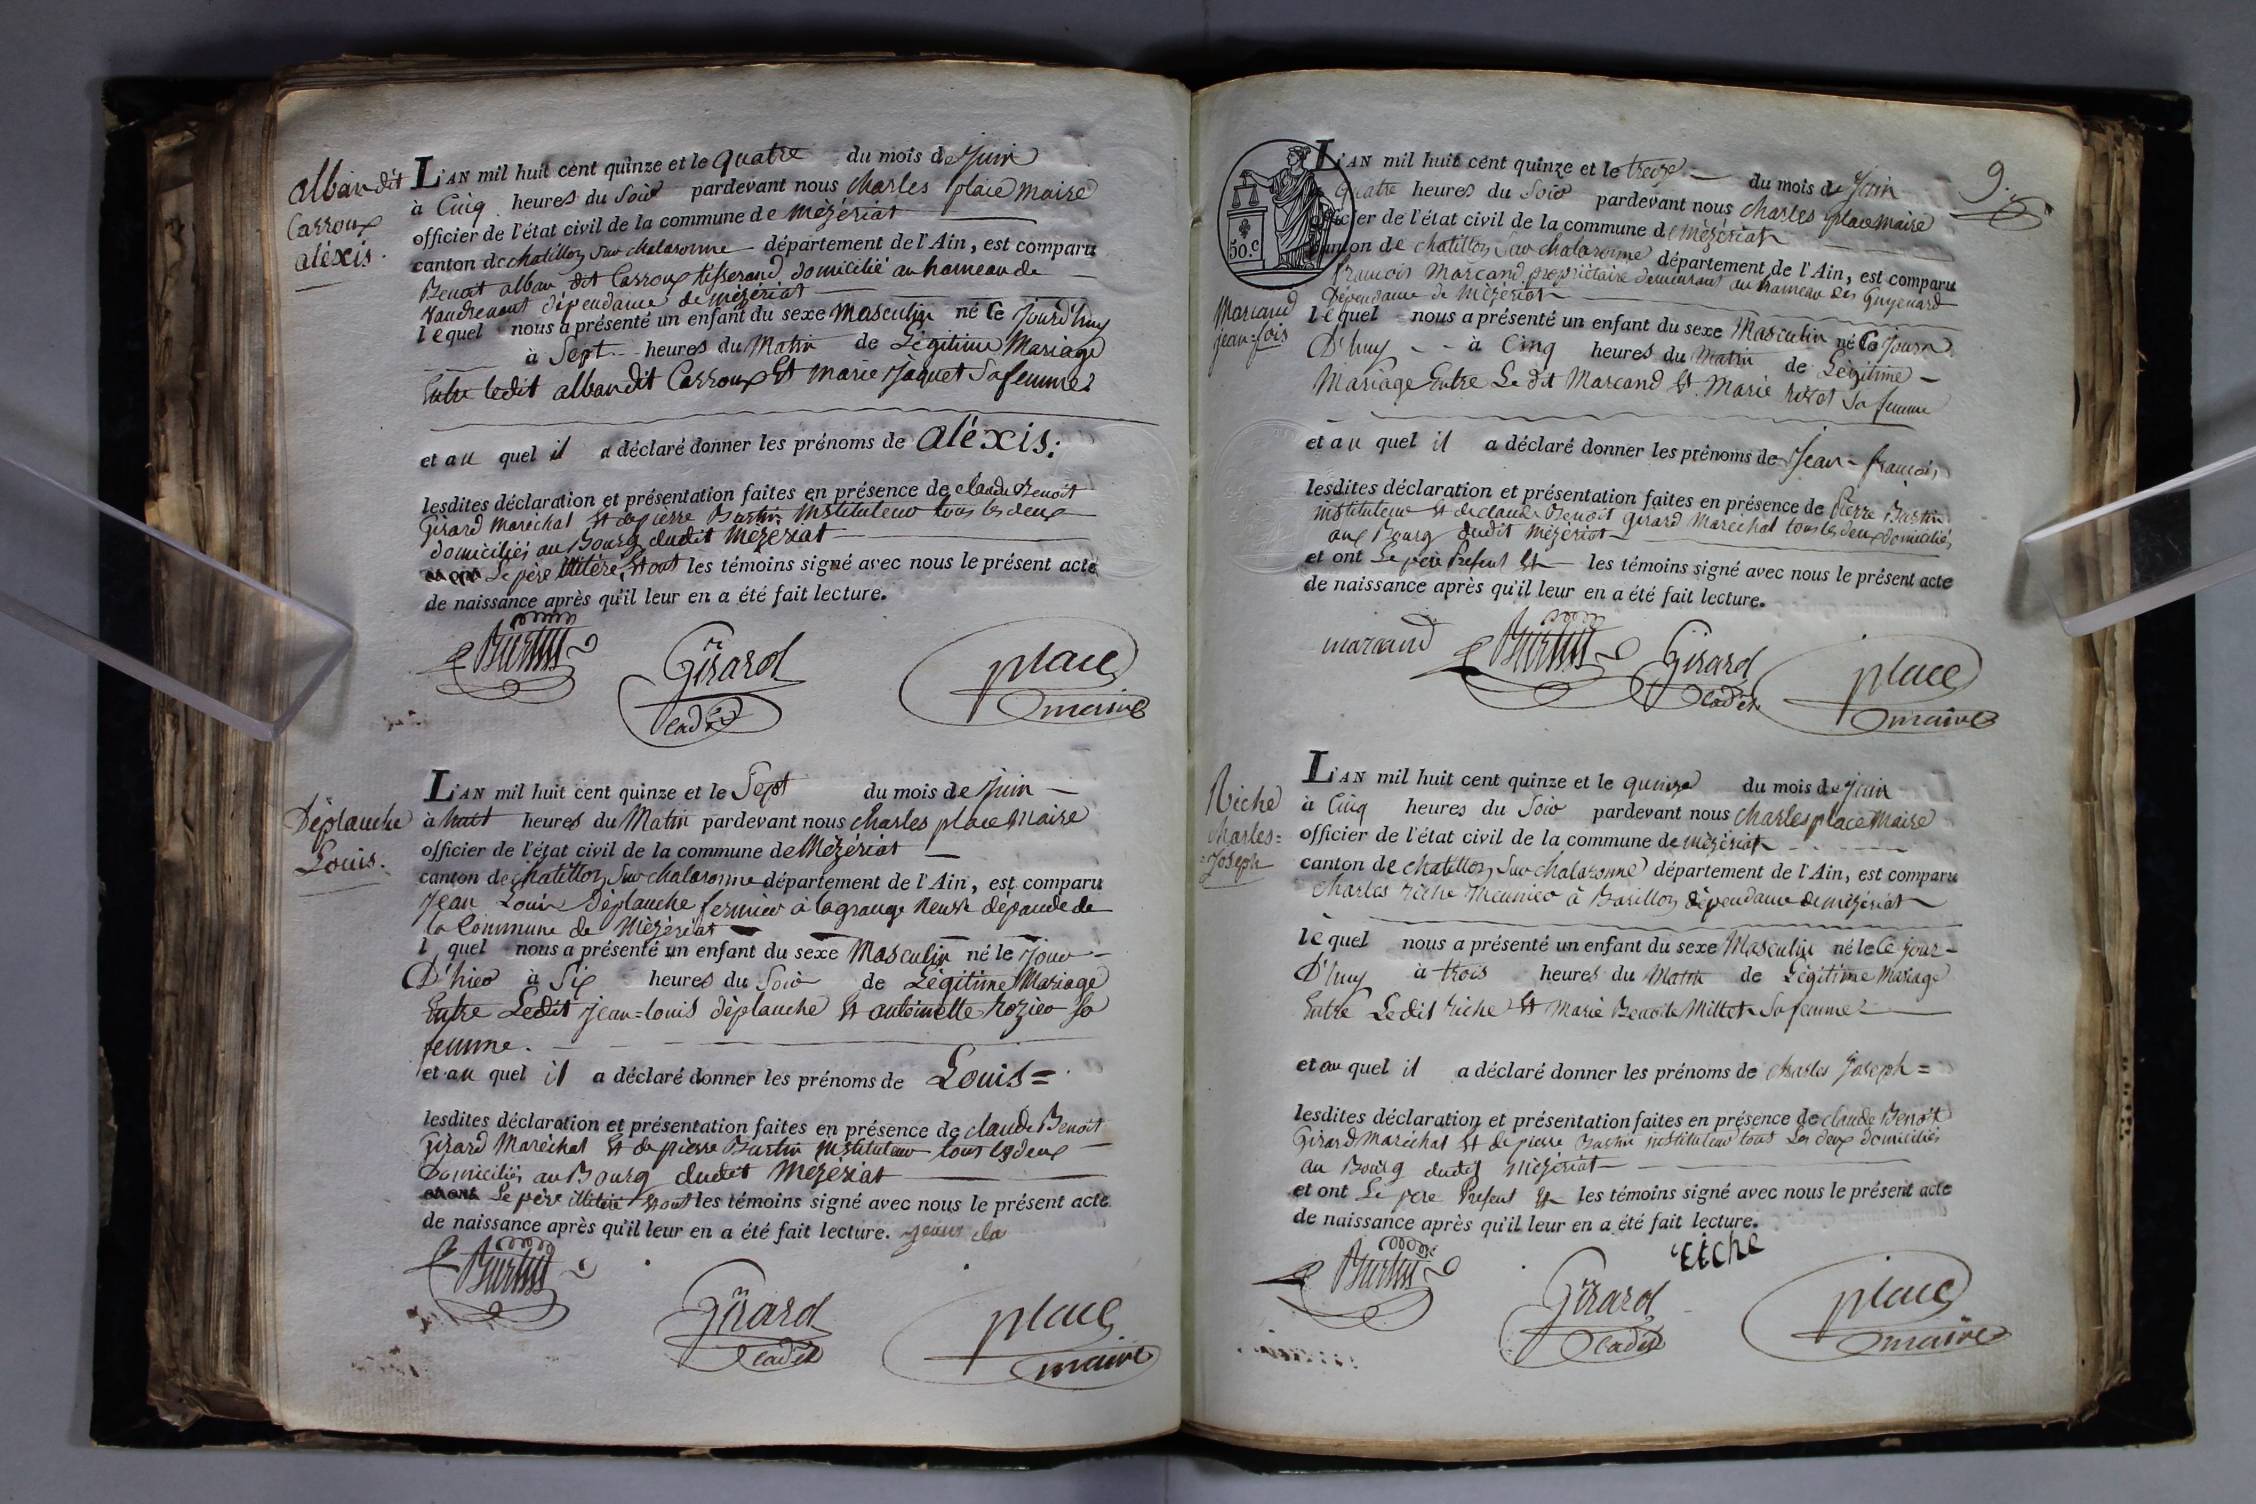 alban dit
Carroux
aléxis.
L'AN mil huit cent quinze et le quatre du mois de Juin
à Cinq heures du Soir pardevant nous Charles place maire
officier de l'état civil de la commune de Mézériat
canton de chatillon Sur chalaronne département de l'Ain, est comparu
Benoit alban dit Carroux tisserand domicilié au hameau de
dépendance de mézériat
lequel nous a présenté un enfant du sexe Masculin né Ce Jourd'huy
à Sept heures du Matin de Légitime Mariage
Entre ledit alban dit Carroux Et marie Jaquet Sa femme
et au quel il a déclaré donner les prénoms de aléxis.
lesdites déclaration et présentation faites en présence de claude Benoit
Girard Maréchal Et de pierre Burtin Instituteur tous les deux
domiciliés au Bourg dudit Mézériat
Le père illitéré, Et ont les témoins signé avec nous le présent acte
de naissance après qu'il leur en a été fait lecture.
Burtin Girard cadet place maire
Déplanche
Louis.
L'AN mil huit cent quinze et le Sept du mois de Juin
à huit heures du Matin pardevant nous Charles place Maire
officier de l'état civil de la commune de Mézériat
canton de chatillon Sur chalaronne département de l'Ain, est comparu
Jean Louis Déplanche fermier à la grange Neuve dépande de
la Commune de Mézériat
l quel nous a présenté un enfant du sexe Masculin né le Jour
D'hier à Six heures du Soir de Légitime Mariage
Entre Ledit Jean=louis déplanche Et antoinette Rozier Sa
femme.
et au quel il a déclaré donner les prénoms de Louis=
lesdites déclaration et présentation faites en présence de claude Benoit
Girard Maréchal Et de pierre Burtin Instituteur tous les deux
Domiciliés au Bourg dudit Mézériat
Le père illitéré Et ont les témoins signé avec nous le présent acte
de naissance après qu'il leur en a été fait lecture.
Burtin Girard cadet place maire
9.
50.c
Marcand
jean=fois
L'AN mil huit cent quinze et le treize du mois de Juin
Quatre heures du Soir pardevant nous Charles place Maire
officier de l'état civil de la commune de Mézériat
canton de chatillon Sur chalaronne département de l'Ain, est comparu
francois Marcand propriétaire demeurant au hameau des Guyenard
Dépendance de Mézériat
lequel nous a présenté un enfant du sexe Masculin né Ce Jour
D'huy à Cinq heures du Matin de Légitime
Mariage Entre Le dit Marcand Et Marie Sa femme
et au quel il a déclaré donner les prénoms de Jean-françois
lesdites déclaration et présentation faites en présence de Pierre Burtin
instituteur Et de claude Benoit Girard Maréchal tous les deux domiciliés
aux Bourg dudit Mézériat
et ont Le père Présent Et les témoins signé avec nous le présent acte
de naissance après qu'il leur en a été fait lecture.
marcand Burtin Girard cadet place maire
Riche
Charles=
=Joseph
L'AN mil huit cent quinze et le quinze du mois de Juin
à Cinq heures du Soir pardevant nous Charles place Maire
officier de l'état civil de la commune de mézériat
canton de chatillon Sur chalaronne département de l'Ain, est comparu
Charles riche Meunier à Barillon dépendance de mézériat
lequel nous a présenté un enfant du sexe Masculin né le Ce jour-
D'huy à trois heures du Matin de Légitime Mariage
Entre Ledit riche Et Marie Benoite Millet Sa femme
et au quel il a déclaré donner les prénoms de charles Joseph=
lesdites déclaration et présentation faites en présence de claude Benoit
Girard Maréchal Et de pierre Burtin instituteur tous Les deux domiciliés
au Bourg dudit Mézériat
et ont Le père Présent Et les témoins signé avec nous le présent acte
de naissance après qu'il leur en a été fait lecture.
riche
Burtin Girard cadet place maire